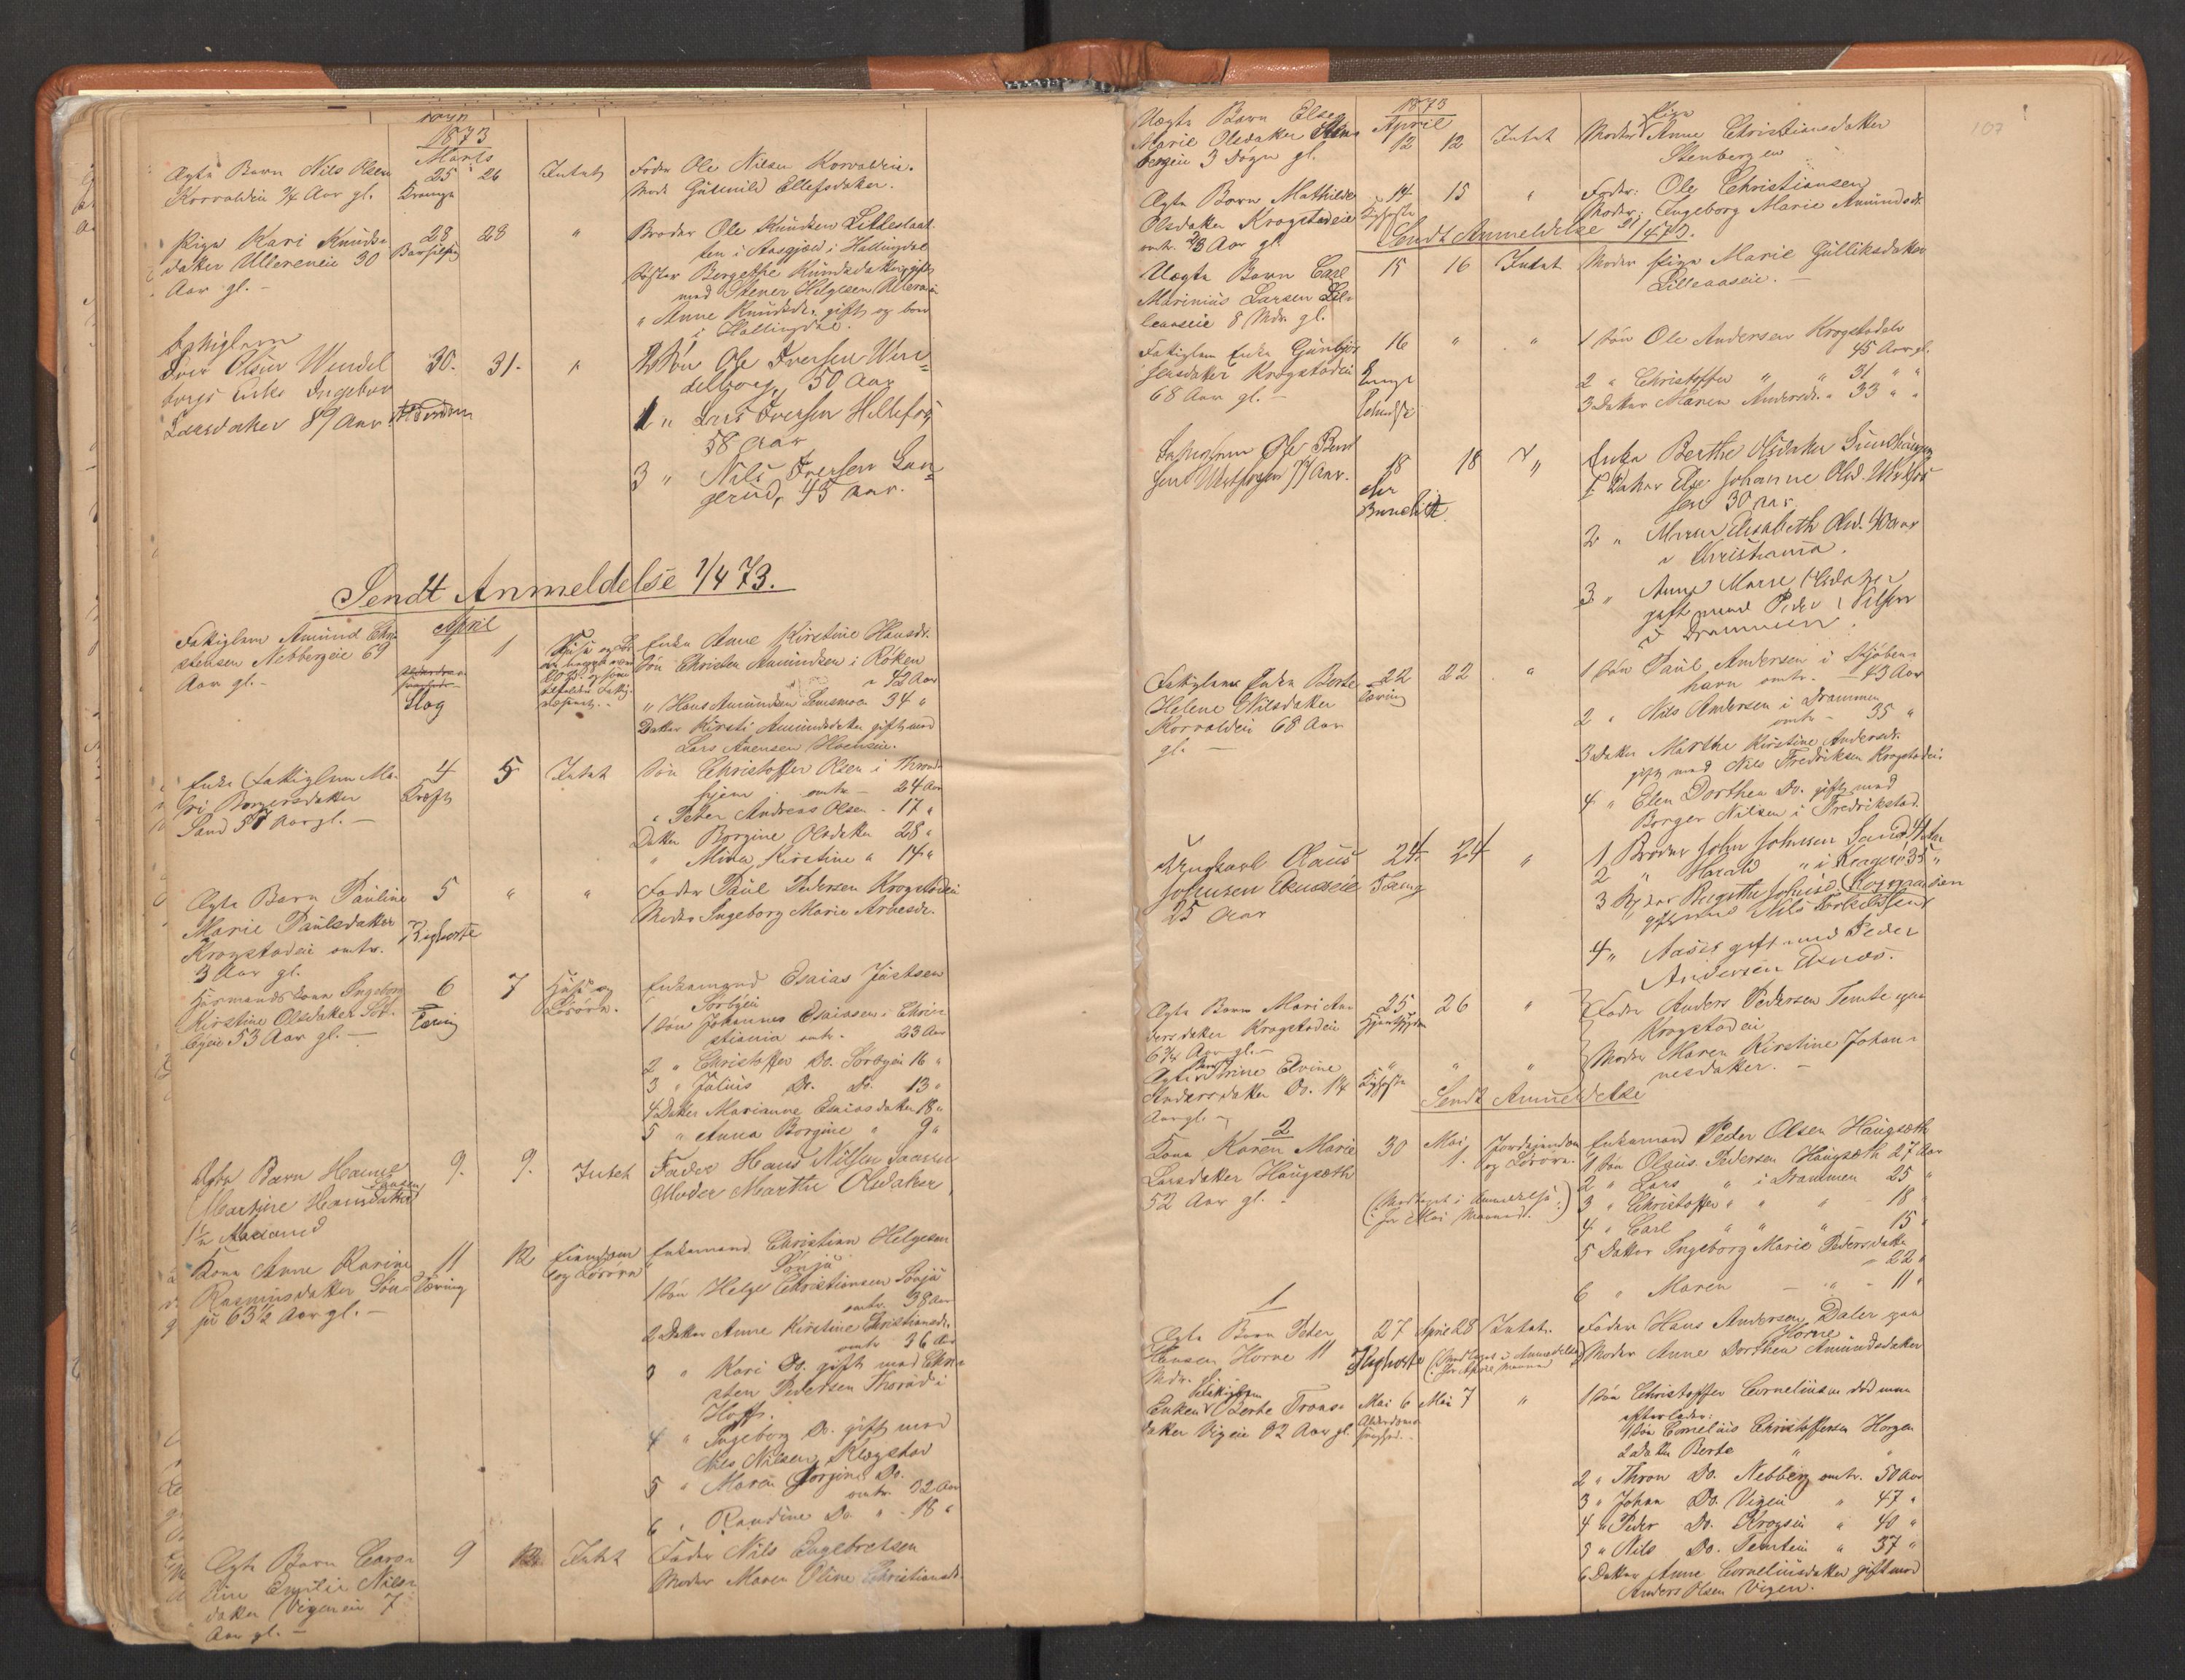 1873
Marts
Ægte Barn Nils Olsen
Korvaldeie 3/4 Aar gl.
25
Krampe
26
Intet
Fader Ole Nilsen Korvaldeie.
Mode Gunild Ellefsdatter.
Pige Kari Knuds-
datter Ullereneie 30
Aar gl. -
28
Barselseng
28
"
Broder Ole Knudsen Lilleslaat-
ten i Aasgjæld i Hallingdal
Søster Bergethe Knudsdatter gift
med Stener Helgesen Ulleren
" Anne Knudsdr. gift og boer
i Hallingdal.
Fattiglem
Iver Olsen Wendel-
borgs Enke Ingebor
Larsdatter 89 Aar
30.
Alderdom
31.
"
2 Søn Ole Iversen Wen-
delborg, 50 Aar
1 " Lars Iversen Hellefos,
58 Aar
3 " Nils Iversen Lan-
gerud, 45 Aar.
Sendt Anmeldelse 1/4 73.
April
Fattiglem Amund Chri-
stensen Nebbergeie 69
Aar gl. -
1
Slag
1
Enke Anne Kirstine Hansdr.
Søn Christen Amundsen i Røken
42 Aar
" Hans Amundsen 34 "
Datter Kirsti Amundsdatter gift med
Lars Evensen
Enke Fattiglem Ma-
ri Borgersdatter
Sand 57 Aar gl. -
4
Kræft
5
Intet
Søn Christoffer Olsen i Thrond-
hjem omtr. - 24 Aar
" Peter Andreas Olsen - 17 "
Datter Borgine Olsdatter 28 "
" Mina Kirstine " 14 "
Ægte Barn Pauline
Marie Paulsdatter
Krogstadeie omtr.
3 Aar gl.
5
Kighoste
"
"
Fader Paul Pedersen Krogstadeie
Moder Ingeborg Marie Arnesdr.
Husmandskone Ingeborg
Kirstine Olsdatter Sør-
byeie 53 Aar gl. -
6
Tæring
7
Huse og
Løsøre.
Enkemand Esaias Justsen
Sørbyeie
1 Søn Johannes Esaiasen i Chri-
stiania omtr. 23 Aar
2 " Christoffer Do. Sørbyeie 16 "
3 " Julius Do. Do. 13 "
4 Datter Marianne Esaiasdatter 18 "
5 " Anna Borgine " 9 "
Ægte Barn Hanna
Martine Hansdatter
1 1/2 Maaned
9.
9.
Intet
Fader Hans Nilsen
Moder Marthe Olsdatter
Kone Anne Karine
Rasmusdatter Søn-
ju 63 1/2 Aar gl. -
11
Tæring
12
Eiendom
og Løsøre
Enkemand Christian Helgesen
Sønju
1 Søn Helge Christiansen Sønju
omtr. 38 Aar
2 Datter Anne Kirstine Christiansdr.
omtr 36 Aar
3 " Kari Do. gift med Chri-
sten Pedersen Thorud i
Hoff.
4 " Ingeborg Do. gift med
Nils Nilsen Klogstad
5 " Maren Jorgine Do.
omtr. 22 Aar
6 " Randine Do. " - 18 "
Ægte Barn Caro-
line Emilie Nils-
datter Vigeneie 7
Aar gl. -
9
12
Intet
Fader Nils Engebretsen
Moder Maren Oline Christiansdr.
107
1873
April
Uægte Barn Elsa
Marie Olsdatter Sten-
bergeie 3 Døgn gl.
12
12
Intet
Moder Pige Anne Christiansdatter
Stenbergen
Ægte Barn Mathilde
Olsdatter Krogstadeie
omtr. 2/3 Aar gl.
14
Kighoste
15
"
Fader: Ole Christiansen
Moder: Ingeborg Marie Amundsdr.
Sendt Anmeldelse 21/4 73.
Uægte Barn Carl
Marinius Larsen Lil-
leaaseie 8 Mdr. gl.
15
16
Intet
Moder Pige Marie Gulliksdatter
Lilleaaseie. -
Fattiglem Enke Gunbjør
Jensdatter Krogstadeie
68 Aar gl. -
16
"
"
1 Søn Ole Andersen Krogstadeie
45 Aar gl.
2 " Christoffer " " 31 " "
3 Datter Maren Andersdr. " 33 " "
Fattiglem Ole Bent-
sen 77 Aar.
18
18
"
Enke Berthe Olsdatter
1. Datter Else Johanne Olsd.
30 Aar
2 " Maren Elisabeth Olsd. 40 Aar
i Christiania.
3 " Anne Marie Olsdatter
gift med Peder Nilsen
i Drammen.
Fattiglem Enke Berte
Helene Nilsdatter
Korvaldeie 68 Aar
gl. -
22
Tæring
22
"
1 Søn Paul Andersen i Kjøben-
havn omtr. - 43 Aar
2 " Nils Andersen i Drammen
omtr - 35 "
3 Datter Marthe Kirstine Andersdr.
gift med Nils Fredriksen Krogstadeie
4 " Elen Dorthea Do. gift med
Borger Nilsen i Fredrikstad.
Ungkarl Claus
Johnsen Exnæseie
25 Aar
24
Tæring
24
"
1 Broder John Johnsen Sand, 41 Aar
2 " Harald " i Kragerø 35 "
3 Søster Birgitte Johnsd.
gift med Nils Torkelsen
4 " Aaste gift med Peder
Andersen Exnæs.
Ægte Barn Mari An-
dersdatter Krogstadeie
6 3/4 Aar gl. -
25
26
"
Fader Anders Pedersen Temte paa
Krogstadeie
Moder Maren Kirstine Johan-
nesdatter. -
Ægte Barn Trine Elvine
Andersdatter Do. 1 1/4
Aar gl. -
"
Kighoste
"
"
Sendt Anmeldelse
2
Kone Karen Marie
Larsdatter Haugsæth
52 Aar gl. -
30
Mai
1.
Jordeiendom
og Løsøre.
(Medtaget i Anmeldelse
for Mai Maaned.)
Enkemand Peder Olsen Haugsæth
1 Søn Olaus Pedersen Haugsæth 27 Aar
2 " Lars " i Drammen 25 "
3 " Christoffer " " " - 18 "
4 " Carl " " " - 15 "
5 Datter Ingeborg Marie Pedersdatter
- 22 "
6 " Maren - " - 11 "
1
Ægte Barn Peder
Hansen Horne 11
Mdr. gl.
27
Kighoste
April 28
Intet.
(Medtaget i Anmeldelse
for April Maaned)
Fader Hans Andersen Daler paa
Horne
Moder Anne Dorthea Amundsdatter
Fattiglem
Enken Berte Trons-
datter Vigeie 82 Aar gl.
Mai 6
Alderdoms-
svaghed. -
Mai 7
"
1 Søn Christoffer Corneliusen død men
efterlader:
1 Søn Cornelius Christoffersen Horgen
2 Datter Berte " "
2 " Thron Do. Nebberg omtr. 50 Aar
3 " Johan Do. Vigeie " 47 "
4 " Peder Do. Krogseie " 40 "
5 " Nils Do. Temteie " 37 "
6 Datter Anne Corneliusdatter gift med
Anders Olsen Vigen.